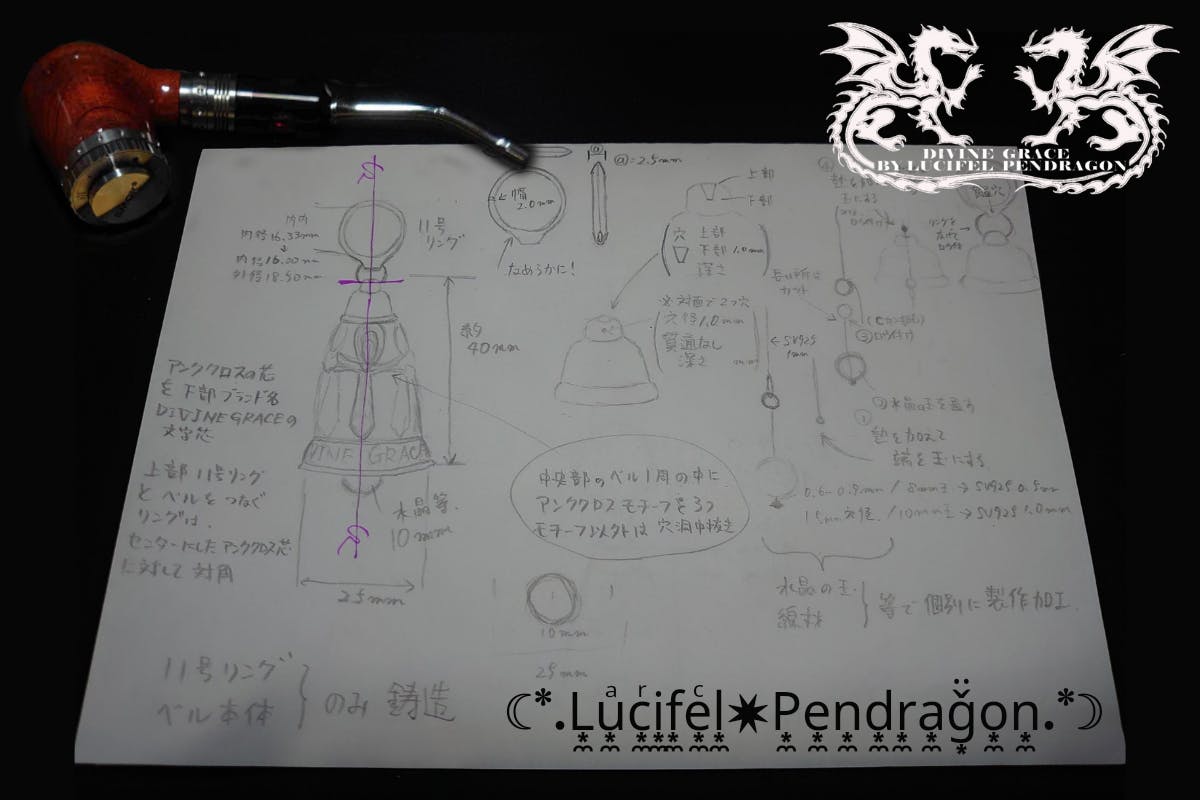 DIVINE GRACE
BY LUCIFEL PENDRAGON
内径16.33mm
内径16.00mm
外径18.50mm
11号
リング
幅
2.0mm
なめらかに!
@=2.5mm
上部
下部
穴 上部
下部 1.0mm
深さ
※対面で2つ穴
穴径1.0mm
貫通なし
深さ mm
約
40mm
アンククロスの芯
を下部ブランド名
DIVINE GRACEの
文字芯
上部11号リング
とベルをつなぐ
リングは、
センターにしたアンククロス芯
に対して対角
VINE GRACE
水晶等.
10mm
25mm
中央部のベル1周の中に
アンククロスモチーフを3つ
モチーフ以外は穴洞中抜き
10mm
25mm
←SV925
1mm
(Cカン)
③ロウ付け
②水晶の玉を通す
①
熱を加えて
端を玉にする
リングを
0.6-0.9mm/8mm玉→SV925 0.5mm
/10mm玉→SV925 1.0mm
水晶の玉.
線材
等で個別に製作加工.
11号リング
ベル本体
のみ 鋳造
☾*.Lucifel✷Pendragon.*☽